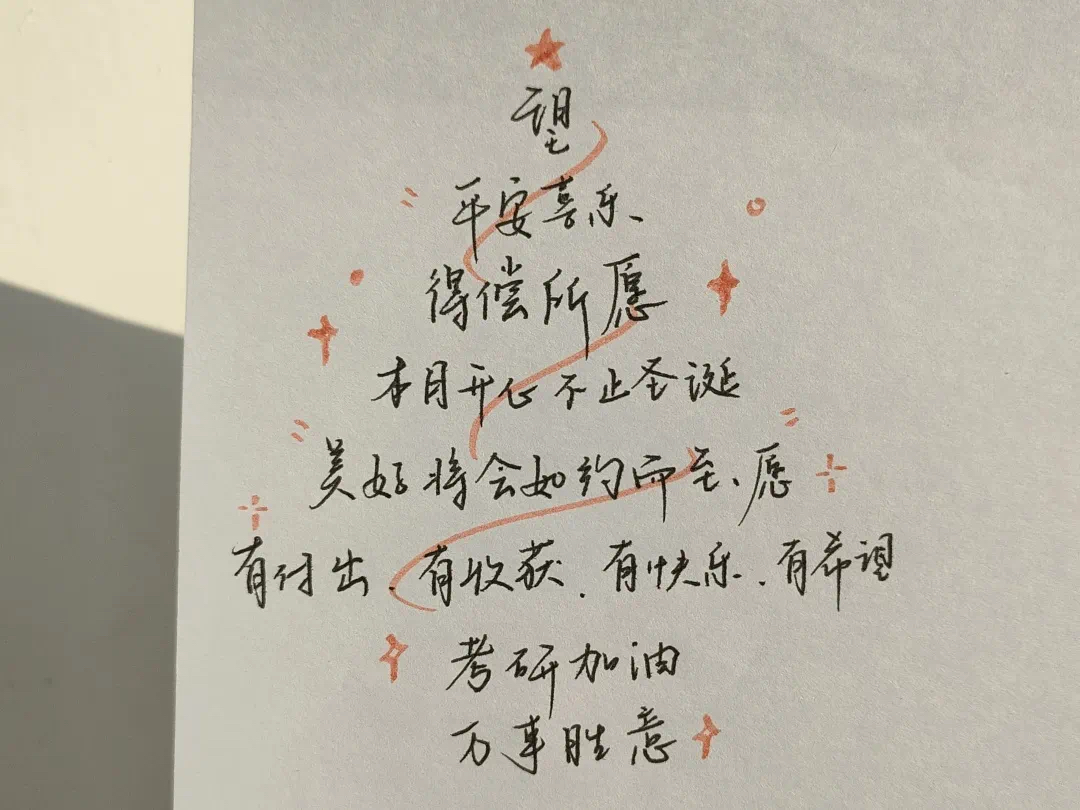 望
平安喜乐、
得偿所愿
本月开心不止圣诞
美好将会如约而至、愿
有付出、有收获、有快乐、有希望
考研加油
万事胜意